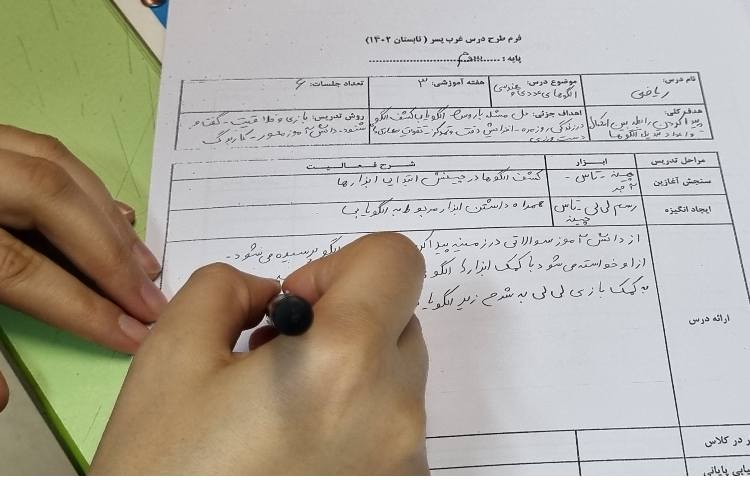 فرم طرح درس غرب پسر ( تابستان ۱۴۰۲)
پایه : ششم
نام درس: ریاضی
موضوع درس: الگوهای عددی و هندسی
هفته آموزشی: ۳
تعداد جلسات: ۶
هدف کلی: پیدا کردن رابطه بین اشکال و اعداد
اهداف جزئی: حل مسئله با روش الگویابی کشف الگو
در زندگی روزمره - افزایش دقت و تمرکز - تقویت
روش تدریس: بازی و خلاقیت - گفت و
شنود - دانش آموز محور - کاربرگ
مراحل تدریس
ابزار
شرح فعالیت
سنجش آغازین
چینه - تاس -
کشف الگوها در چینش ابتدایی ابزارها
ایجاد انگیزه
رسم لی لی - تاس
چینه
همراه داشتن ابزار مربوط به الگویابی
ارائه درس
از دانش آموز سوالاتی در زمینه پیدا
الگو پرسیده می شود -
از او خواسته می شود با کمک ابزارها الگو
به کمک بازی لی لی به شرح زیر الگویا
ر در کلاس
یابی پایانی